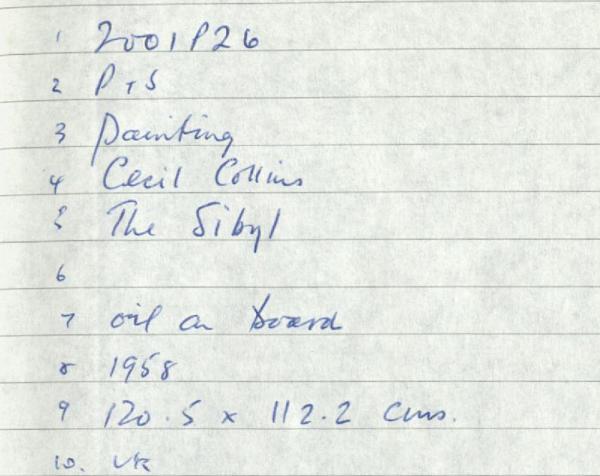 1 2001P26
2 P+S
3 Painting
4 Cecil Collins
5 The Sibyl
6
7 oil on board
8 1958
9 120.5 x 112.2 cms.
10. UK